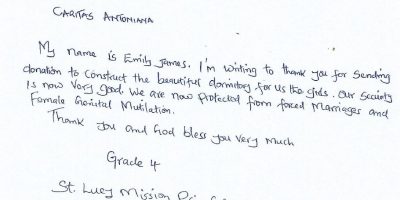 CARITAS ANTONIANA
My name is Emily James. I'm writing to thank you for sending
donation to construct the beautiful dormitory for us the girls. Our society
is now very good. We are now protected from forced Marriages and
Female Genital Mutilation.
Thank you and God bless you very much
Grade 4
St. Lucy Mission